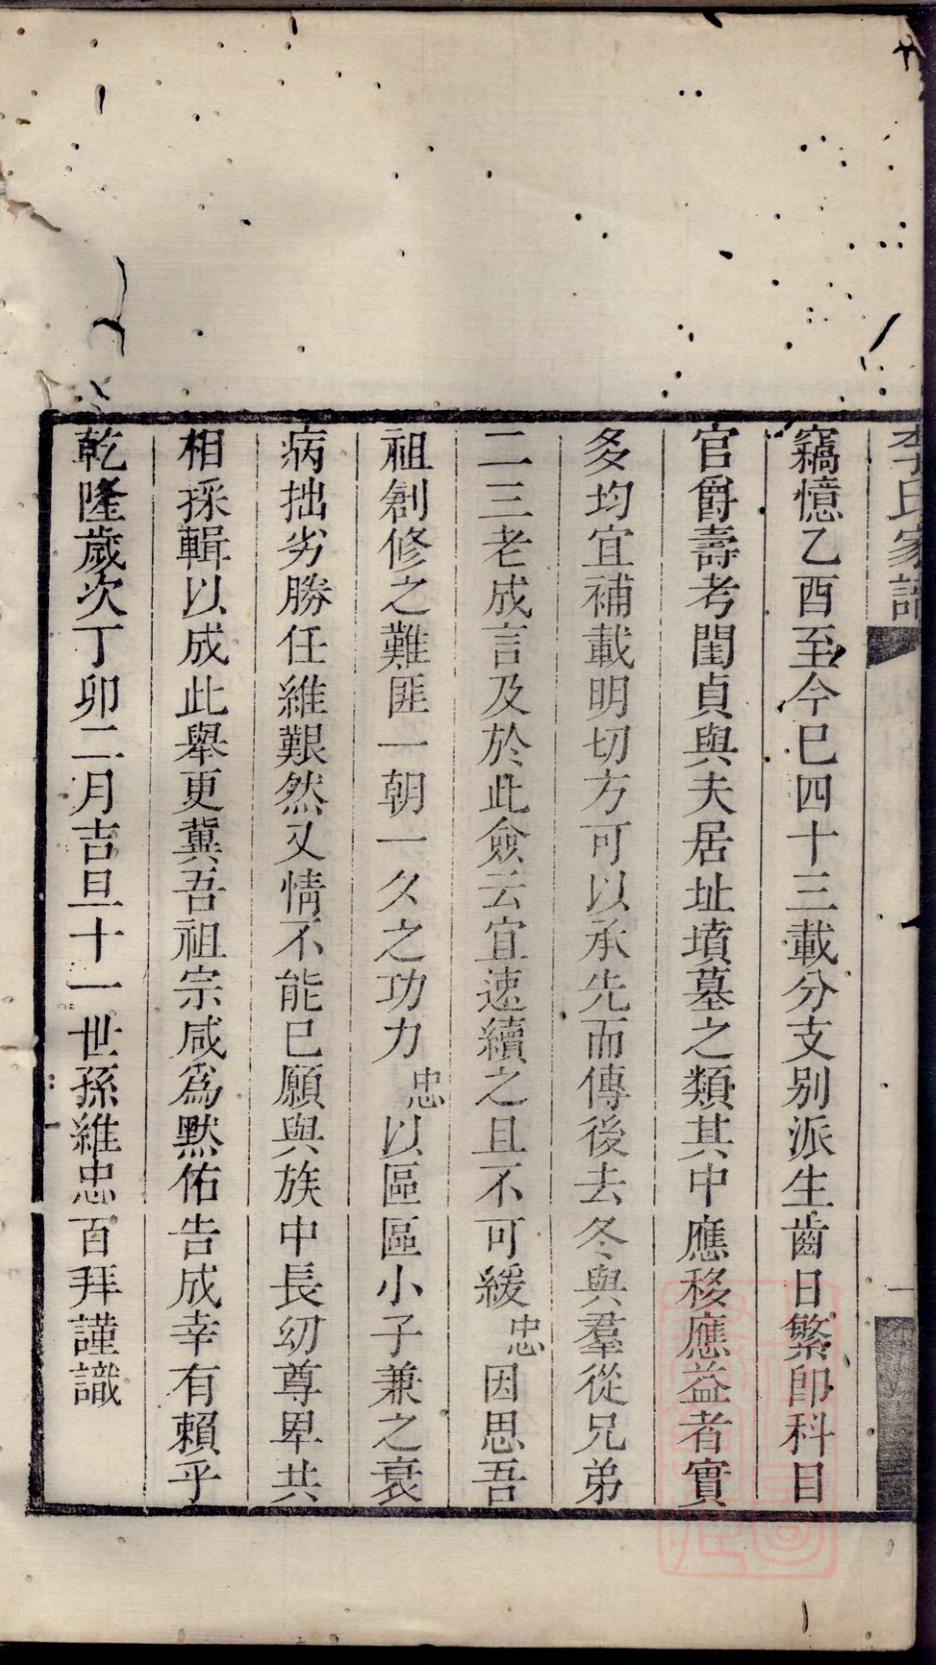 李氏家譜
竊憶乙酉至今巳四十三載分支別派生齒日繁卽科目
官爵壽考閨貞與夫居址墳墓之類其中應移應益者實
多均宜補載明切方可以承先而傳後去冬與羣從兄弟
二三老成言及於此僉云宜速續之且不可緩忠因思吾
祖創修之難匪一朝一夕之功力忠以區區小子兼之衰
病拙劣勝任維艱然又情不能已願與族中長幼尊卑共
相採輯以成此舉更冀吾祖宗咸爲默佑告成幸有賴乎
乾隆歲次丁卯二月吉旦十一世孫維忠百拜謹識